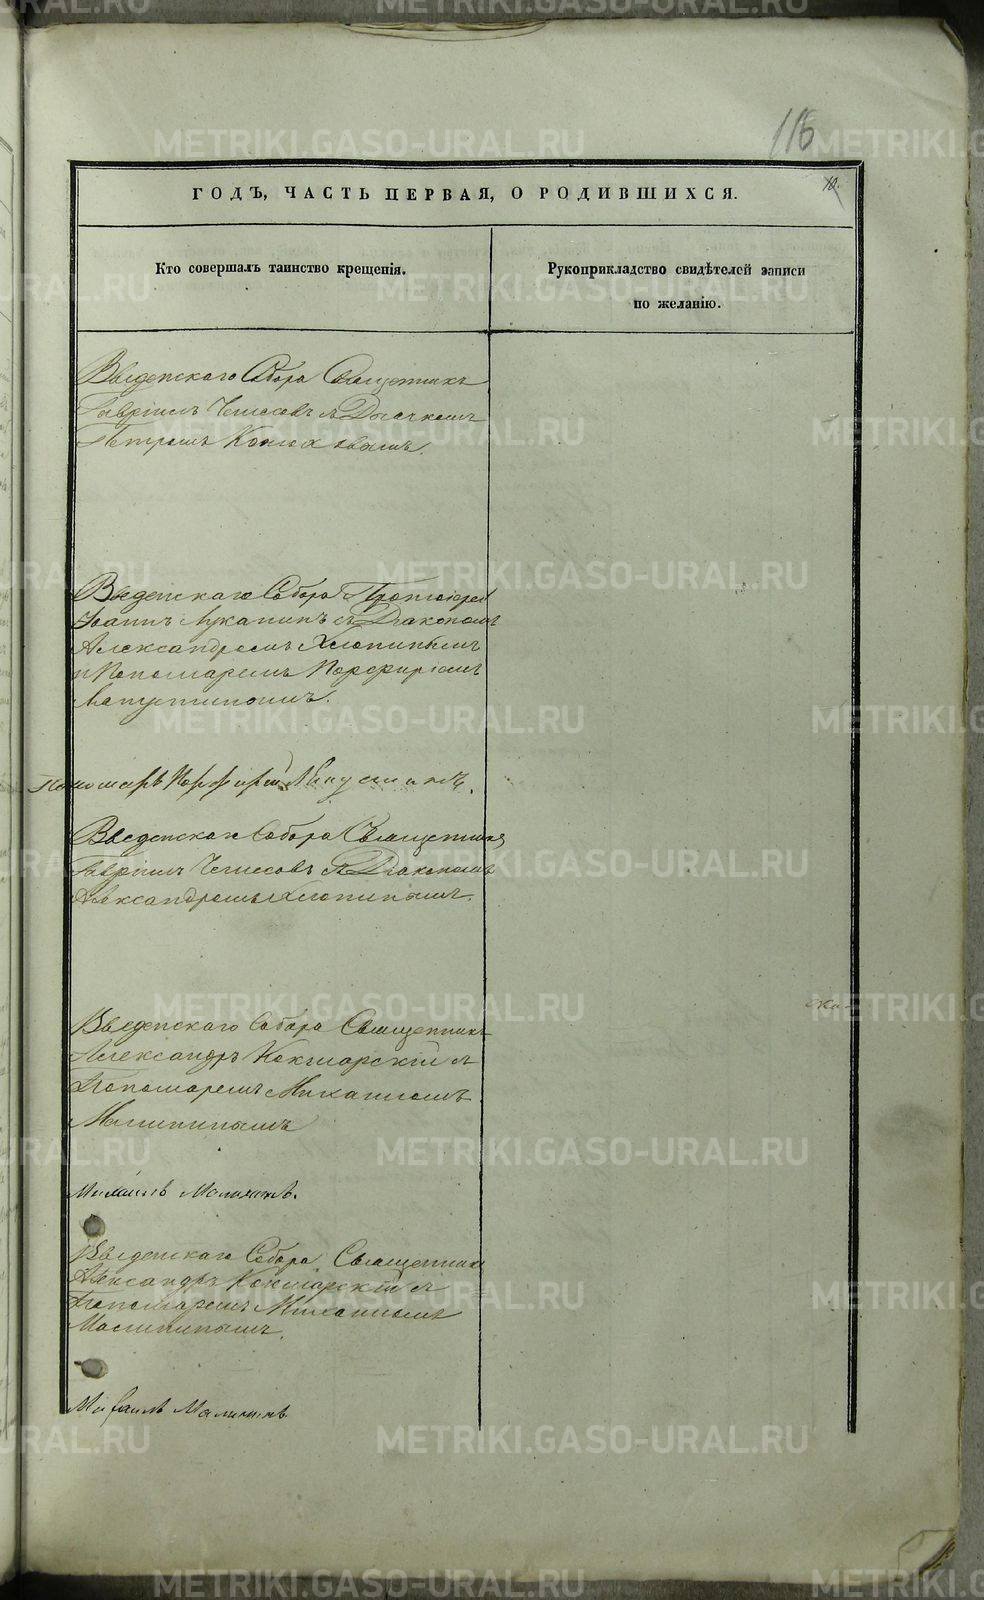 116
10.
ГОДЪ, ЧАСТЬ ПЕРВАЯ, О РОДИВШИХСЯ.
Кто совершалъ таинство крещенія.
Рукоприкладство свидѣтелей записи
по желанію.
Введенскаго Собора Священникъ
Гавріилъ Чемесовъ съ Дьячкомъ
Петромъ Конюховымъ.
Введенскаго Собора Протоіерей
Іоаннъ Луканинъ съ Діакономъ
Александромъ Хлопинымъ
и Пономаремъ Порфиріемъ
Лапустинымъ.
Пономарь Порфирій
Введенскаго Собора Священникъ
Гавріилъ Чемесовъ съ Діакономъ
Александромъ Хлопинымъ.
Введенскаго Собора Священникъ
Александръ Кокшарскій съ
Пономаремъ Михаиломъ
Малининымъ
Михаилъ Малининъ.
Введенскаго Собора Священникъ
Александръ Кокшарскій съ
Пономаремъ Михаиломъ
Малининымъ.
Михаилъ Малининъ
METRIKI.GASO-URAL.RU